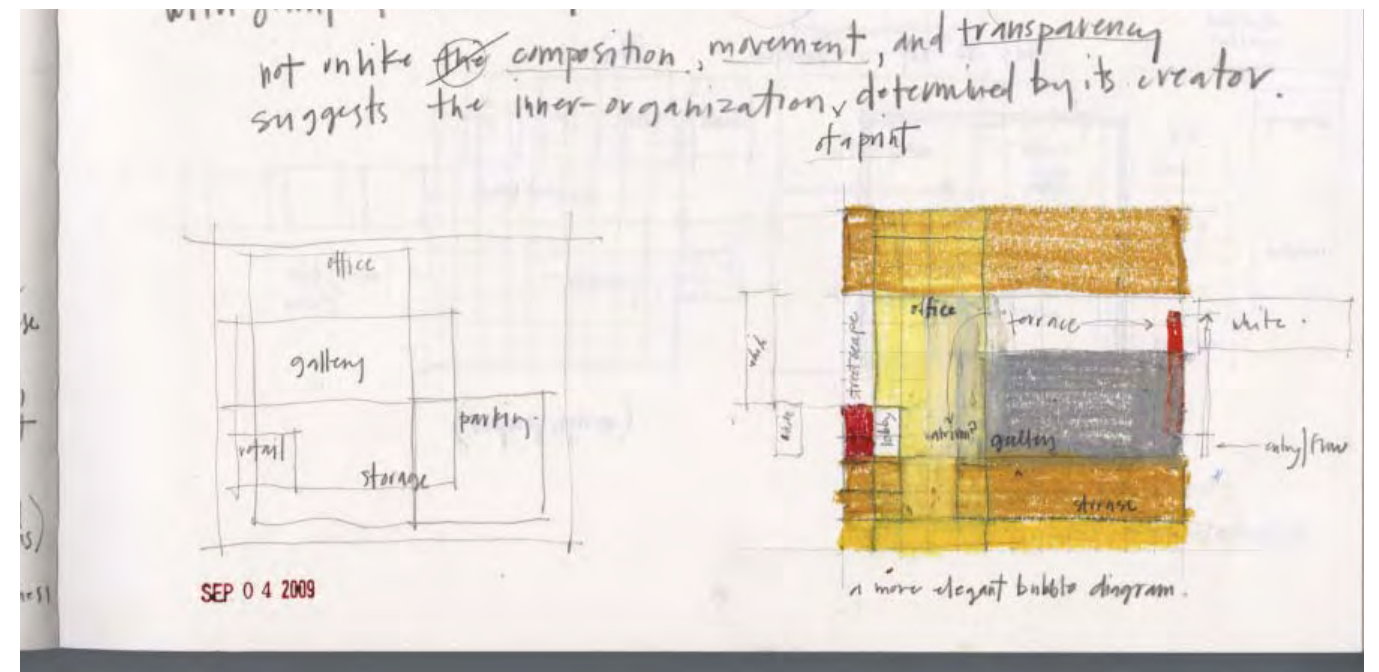 not unlike the composition, movement, and transparency
suggests the inner-organization, determined by its creator.
of a print
office
gallery
parking.
retail
storage
SEP 0 4 2009
office
terrace
white.
streetscape
lobby
atrium?
gallery
entry/flow
storage
a more elegant bubble diagram.